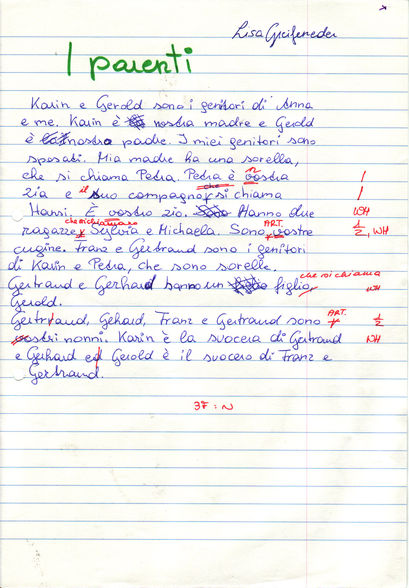 Lisa Greifeneder
I parenti
Karin e Gerold sono i genitori di Anna
e me. Karin è nostra madre e Gerold
è nostro padre. I miei genitori sono
sposati. Mia madre ha una sorella,
che si chiama Petra. Petra è vostra n /
zia e il suo compagno, che si chiama /
Hansi. È vostro zio. Hanno due WH
che si chiamano ART.
ragazze, Sylvia e Michaela. Sono vostre 1/2, WH
cugine. Franz e Gertrand sono i genitori
di Karin e Petra, che sono sorelle.
che si chiama
Gertrand e Gerhard hanno un figlio, WH
Gerold.
ART.
Gertrraud, Gehard, Franz e Gertrand sono 1/2
vostri nonni. Karin è la suocera di Gertrand WH
e Gerhard ed Gerold è il suocero di Franz e
Gertrand.
3F : N